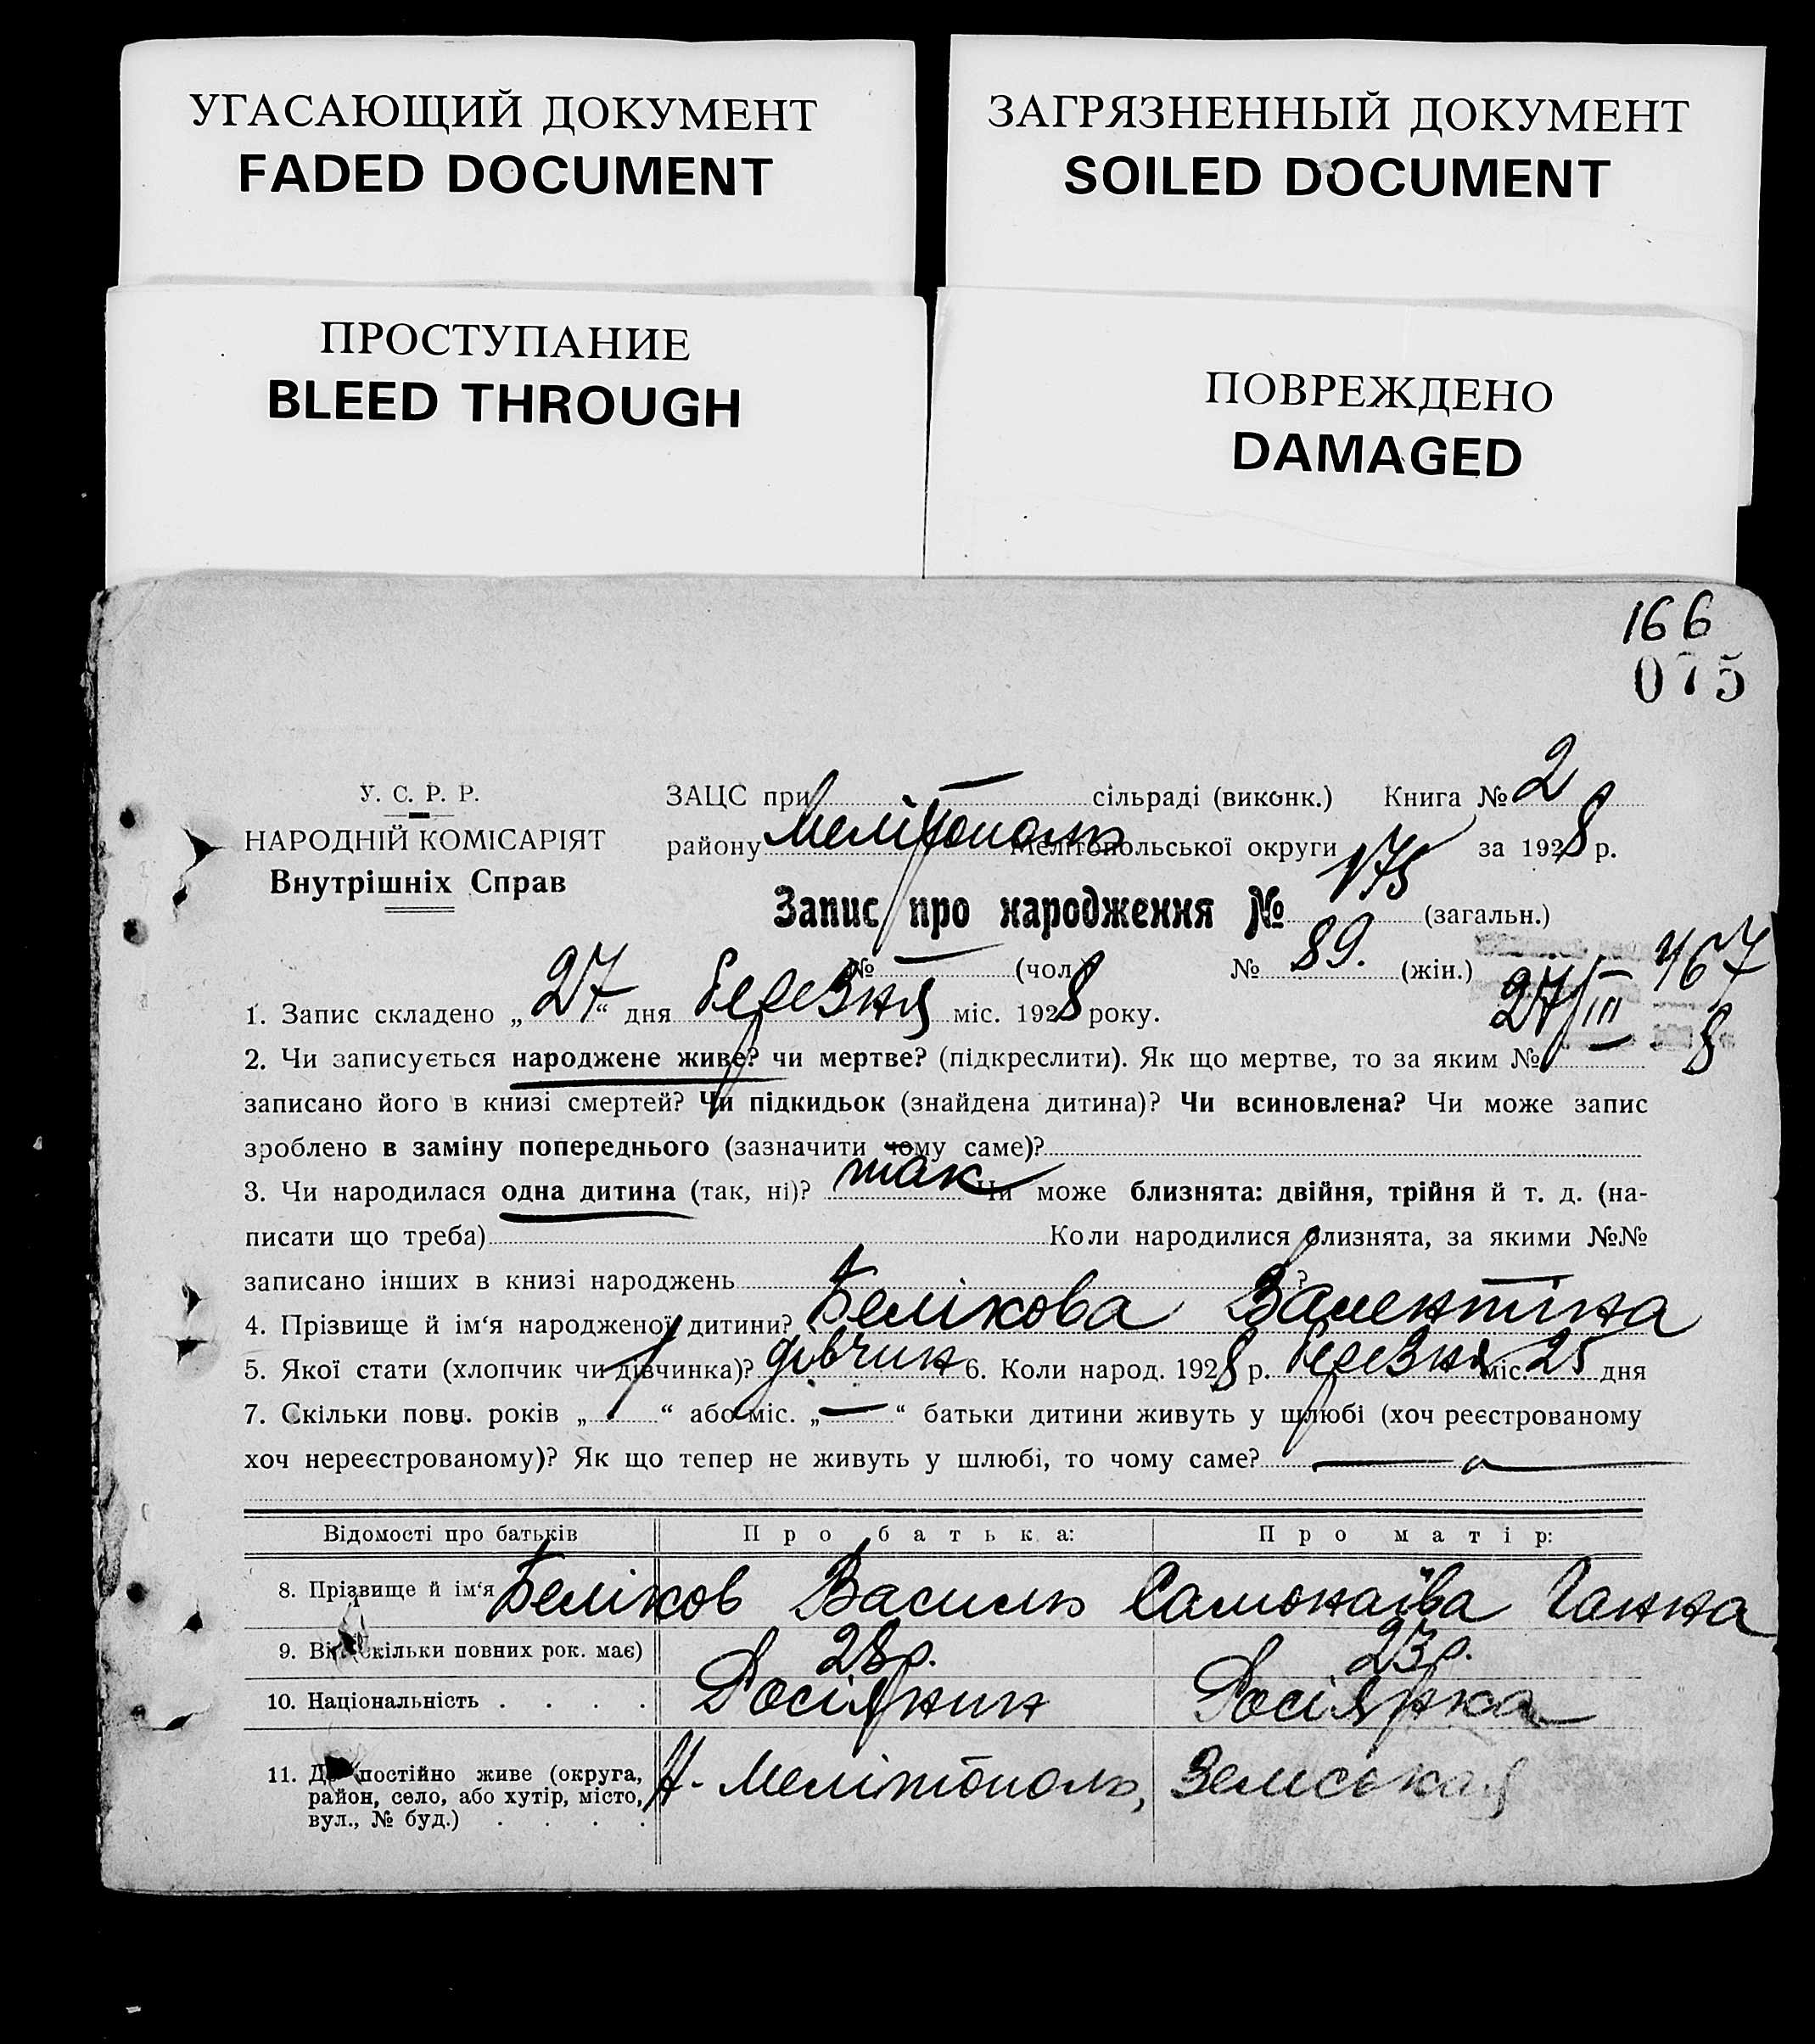 УГАСАЮЩИЙ ДОКУМЕНТ
FADED DOCUMENT
ЗАГРЯЗНЕННЫЙ ДОКУМЕНТ
SOILED DOCUMENT
ПРОСТУПАНИЕ
BLEED THROUGH
ПОВРЕЖДЕНО
DAMAGED
166
075
У. С. Р. Р.
НАРОДНІЙ КОМІСАРІЯТ
Внутрішніх Справ
ЗАЦС при — сільраді (виконк.) Книга № 2
району Мелітополь Мелітопольської округи за 1928 р.
Запис про народження № 175 (загальн.)
№ — (чол.) № 89. (жін.)
27/III 8
1. Запис складено „27“ дня березня міс. 1928 року.
2. Чи записується народжене живе? чи мертве? (підкреслити). Як що мертве, то за яким № —
записано його в книзі смертей? Чи підкидьок (знайдена дитина)? Чи всиновлена? Чи може запис
зроблено в заміну попереднього (зазначити чому саме)?
3. Чи народилася одна дитина (так, ні)? так Чи може близнята: двійня, трійня й т. д. (на-
писати що треба) Коли народилися близнята, за якими №№
записано інших в книзі народжень ?
4. Прізвище й ім‘я народженої дитини? Белікова Валентіна
5. Якої стати (хлопчик чи дівчинка)? дівчин 6. Коли народ. 1928 р. березня міс. 25 дня
7. Скільки повн. років „ “ або міс. „—“ батьки дитини живуть у шлюбі (хоч реєстрованому
хоч нереєстрованому)? Як що тепер не живуть у шлюбі, то чому саме?
Відомості про батьків Про батька: Про матір:
8. Прізвище й ім‘я Беліков Василь Самонаїва Ганна
9. Вік (скільки повних рок. має) 28 р. 23 р.
10. Національність . . . . Росіянин Росіянка
11. Де постійно живе (округа,
район, село, або хутір, місто,
вул., № буд.) . . . .
Мелітополь, Земськая